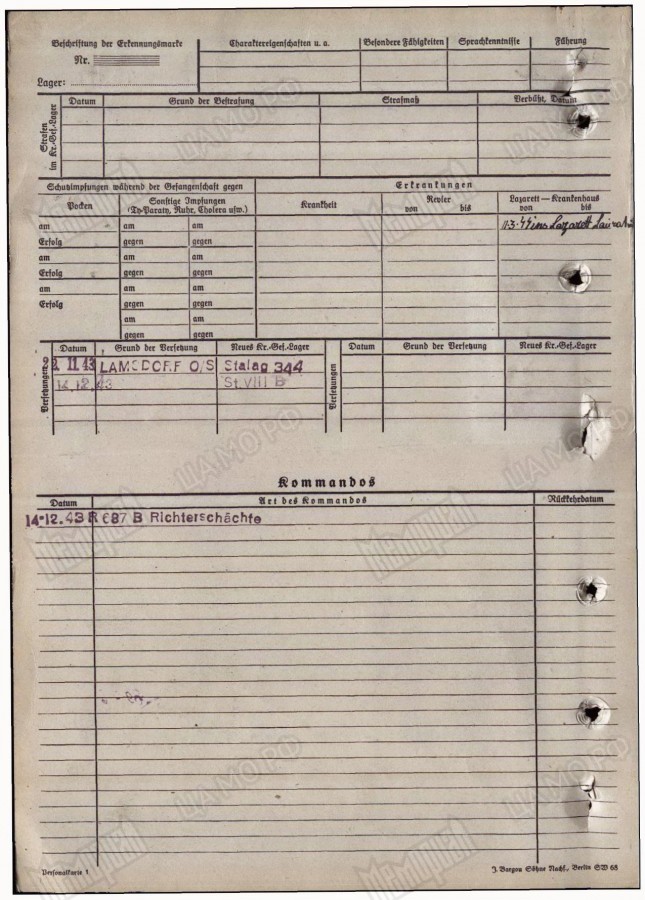 Beschriftung der Erkennungsmarke
Nr.
Lager:
Charaktereigenschaften u. a.
Besondere Fähigkeiten
Sprachkenntnisse
Führung
Strafen im Kr.-Gef.-Lager
Datum
Grund der Bestrafung
Strafmaß
Verbüßt, Datum
Schutzimpfungen während der Gefangenschaft gegen
Erkrankungen
Pocken
Sonstige Impfungen
(Ty-Paraty, Ruhr, Cholera usw.)
Krankheit
Revier
von bis
Lazarett — Krankenhaus
von bis
am am am
11.3.44 ins Lazarett
Erfolg gegen gegen
am am am
Erfolg gegen gegen
am am am
Erfolg gegen gegen
am am
gegen gegen
Versetzungen
Datum Grund der Versetzung Neues Kr.-Gef.-Lager
11.43 LAMSDORF O/S Stalag 344
14.12.43 St. VIII B
Versetzungen
Datum Grund der Versetzung Neues Kr.-Gef.-Lager
Kommandos
Datum Art des Kommandos Rückkehrdatum
14.12.43 R 687 B Richterschächte
Personalkarte 1
J. Bargou Söhne Nachf., Berlin SW 68
ЦАМО РФ
Мемориал